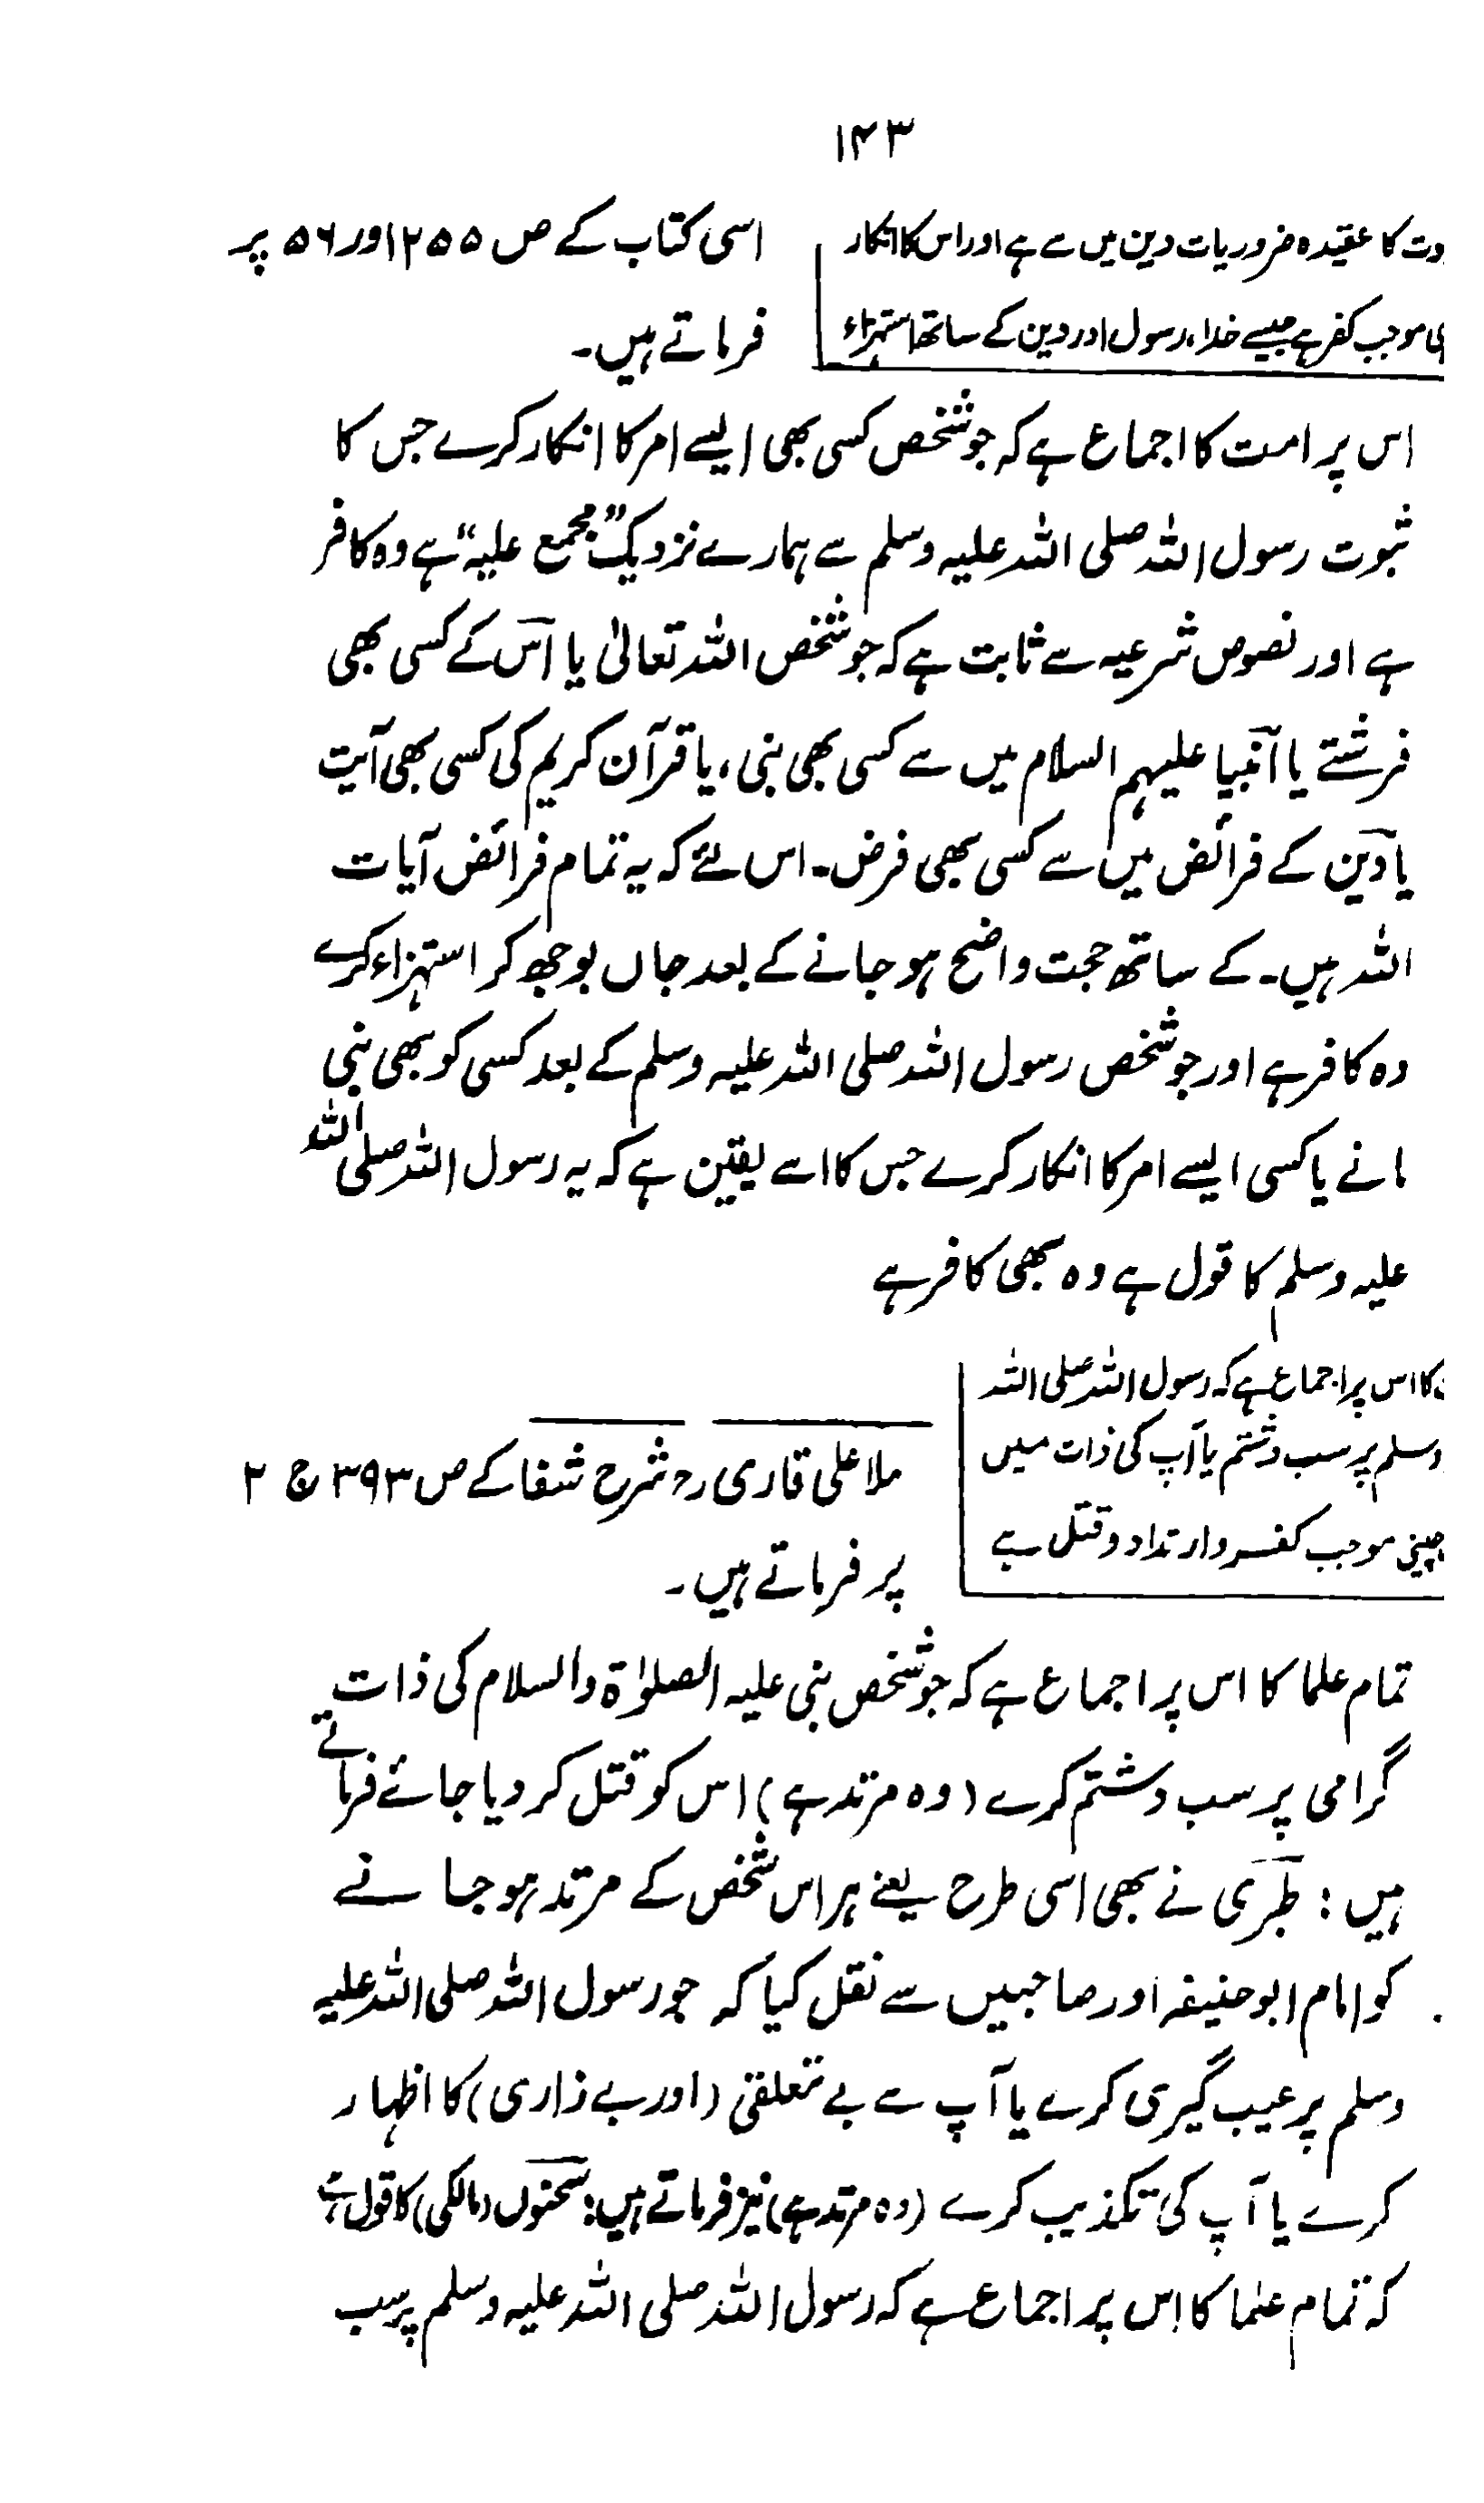 ۱۲۳
وت کا عقیدہ ضروریات دین میں سے ہے اور اس کا انکار
موجب کفر ہے جیسے خدا، رسول اور دین کے ساتھ استہزاء
اسی کتاب کے ص ۲۵۵ اور ۵۶ پر
فرماتے ہیں۔
اس پر امت کا اجماع ہے کہ جو شخص کسی بھی ایسے امر کا انکار کرے جس کا
ثبوت رسول اللہ صلی اللہ علیہ وسلم سے ہمارے نزدیک ”مجمع علیہ“ ہے وہ کافر
ہے اور نصوص شرعیہ سے ثابت ہے کہ جو شخص اللہ تعالیٰ یا اس کے کسی بھی
فرشتے یا انبیا علیہم السلام میں سے کسی بھی نبی، یا قرآن کریم کی کسی بھی آیت
یا دین کے فرائض میں سے کسی بھی فرض۔ اس لئے کہ یہ تمام فرائض آیات
اللہ ہیں۔ کے ساتھ حجت واضح ہو جانے کے بعد جان بوجھ کر استہزاء کرے
وہ کافر ہے اور جو شخص رسول اللہ صلی اللہ علیہ وسلم کے بعد کسی کو بھی نبی
مانے یا کسی ایسے امر کا انکار کرے جس کا اسے یقین ہے کہ یہ رسول اللہ صلی اللہ
علیہ وسلم کا قول ہے وہ بھی کافر ہے
کا اس پر اجماع ہے کہ رسول اللہ صلی اللہ
وسلم پر سب وشتم یا آپ کی ذات میں
چینی موجب کفر وارتداد وقتل ہے
ملا علی قاری رح شرح شفا کے ص ۳۹۳ ج ۲
پر فرماتے ہیں۔
تمام علما کا اس پر اجماع ہے کہ جو شخص نبی علیہ الصلوٰۃ والسلام کی ذات
گرامی پر سب وشتم کرے (وہ مرتد ہے) اس کو قتل کر دیا جائے فرماتے
ہیں: طبری نے بھی اسی طرح یعنے ہر اس شخص کے مرتد ہو جانے
کو امام ابو حنیفہ اور صاحبین سے نقل کیا کہ جو رسول اللہ صلی اللہ علیہ
وسلم پر عیب گیری کرے یا آپ سے بے تعلقی (اور بے زاری) کا اظہار
کرے یا آپ کی تکذیب کرے (وہ مرتد ہے) نیز فرماتے ہیں: سحنون (مالکی) کا قول ہے
کہ تمام علما کا اس پر اجماع ہے کہ رسول اللہ صلی اللہ علیہ وسلم پر سب